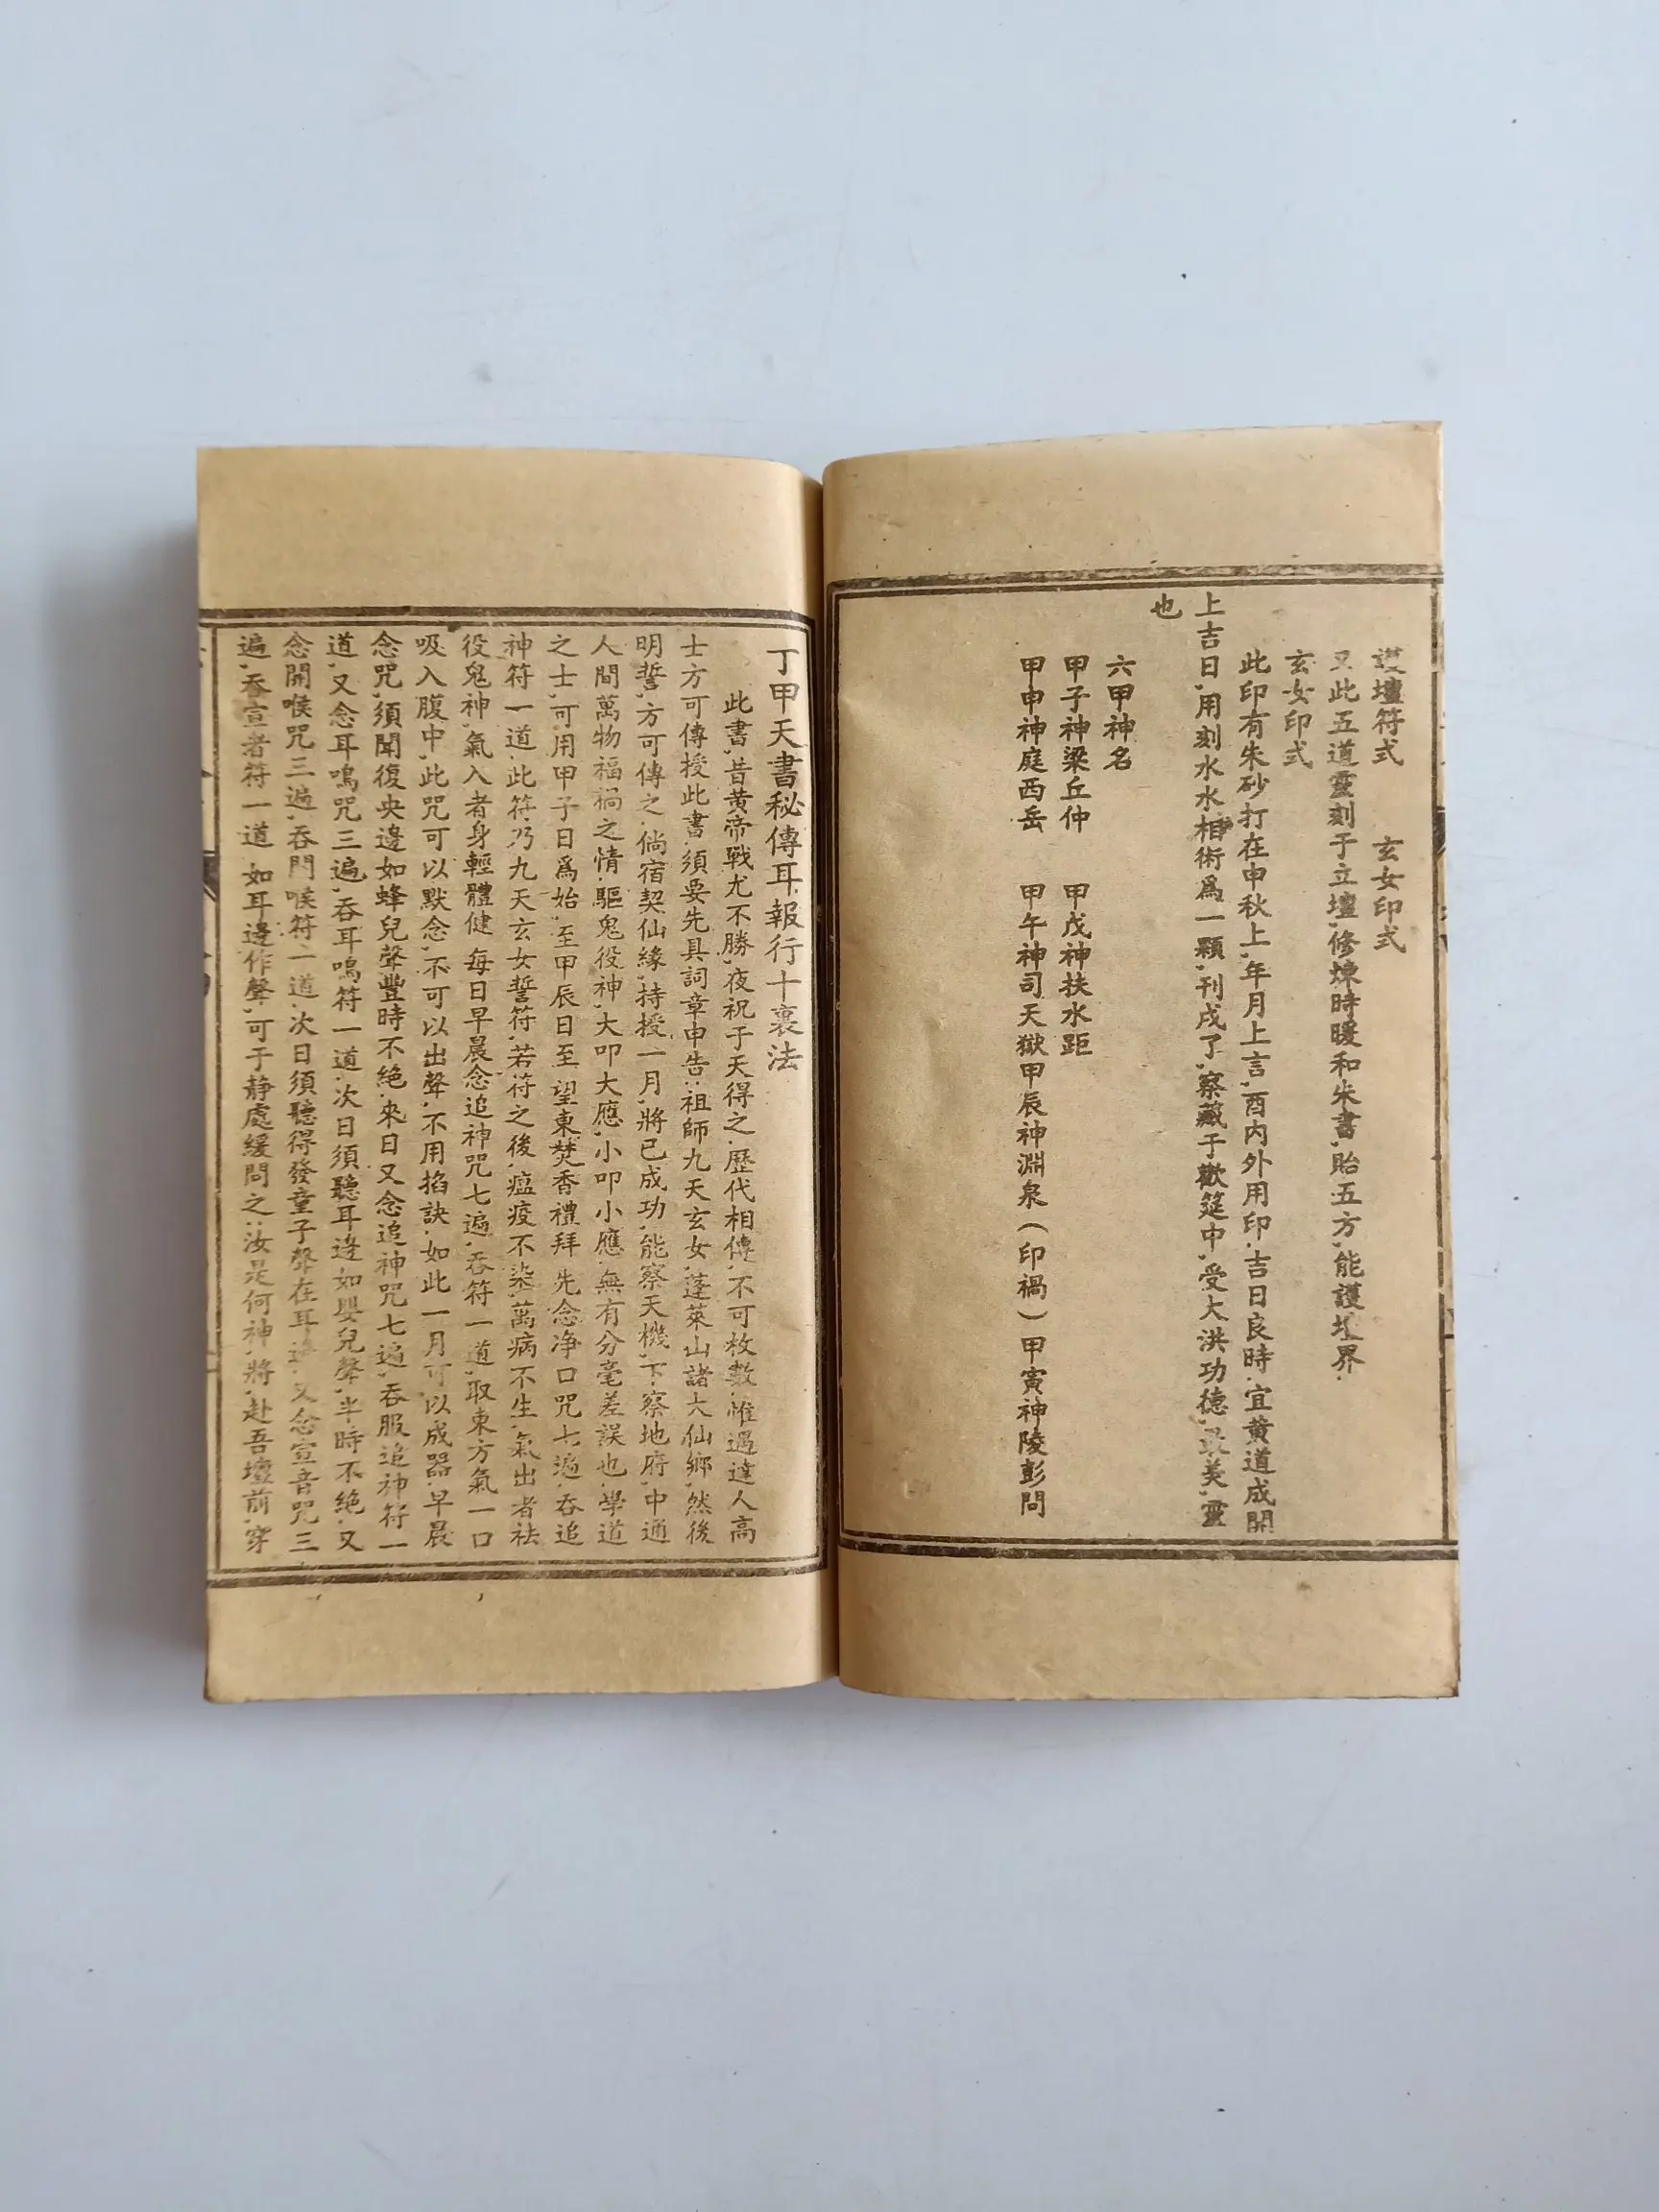 護壇符式 玄女印式
又此五道靈刻于立壇,修煉時暖和朱書,貽五方,能護壇界.
玄女印式
此印有朱砂打在申秋上,年月上言,酉內外用印,吉日良時,宜黄道成開
上吉日,用刻水水相術爲一顆,刊戌了,察藏于歡筵中,受大洪功德,最美,靈
也
六甲神名
甲子神梁丘仲 甲戊神扶水距
甲申神庭西岳 甲午神司天獄甲辰神淵泉(印禍)甲寅神陵彭問
丁甲天書秘傳耳報行十裏法
此書,昔黄帝戰尤不勝,夜祝于天得之,歷代相傳,不可枚數,惟遇達人高
士方可傳授此書,須要先具詞章申告:祖師九天玄女,蓬萊山諸大仙鄉,然後
明誓,方可傳之,倘宿契仙緣,持授一月,將已成功,能察天機,下察地府,中通
人間萬物福禍之情,驅鬼役神,大叩大應,小叩小應,無有分毫差誤也,學道
之士,可用甲子日爲始,至甲辰日至望東焚香禮拜,先念净口咒七遍,吞追
神符一道,此符乃九天玄女誓符,若符之後,瘟疫不染,萬病不生,氣出者祛
役鬼神,氣入者身輕體健,每日早晨念追神咒七遍,吞符一道,取東方氣一口
吸入腹中,此咒可以默念,不可以出聲,不用掐訣,如此一月可以成器,早晨
念咒,須聞復央邊如蜂兒聲豐時不絕,來日又念追神咒七遍,吞服追神符一
道,又念耳鳴咒三遍,吞耳鳴符一道,次日須聽耳邊如嬰兒聲,半時不絕,又
念開喉咒三遍,吞門喉符一道次日須聽得發童子聲在耳邊,又念宣音咒三
遍,吞宣者符一道,如耳邊作聲,可于静處緩問之:汝是何神,將赴吾壇前,穿